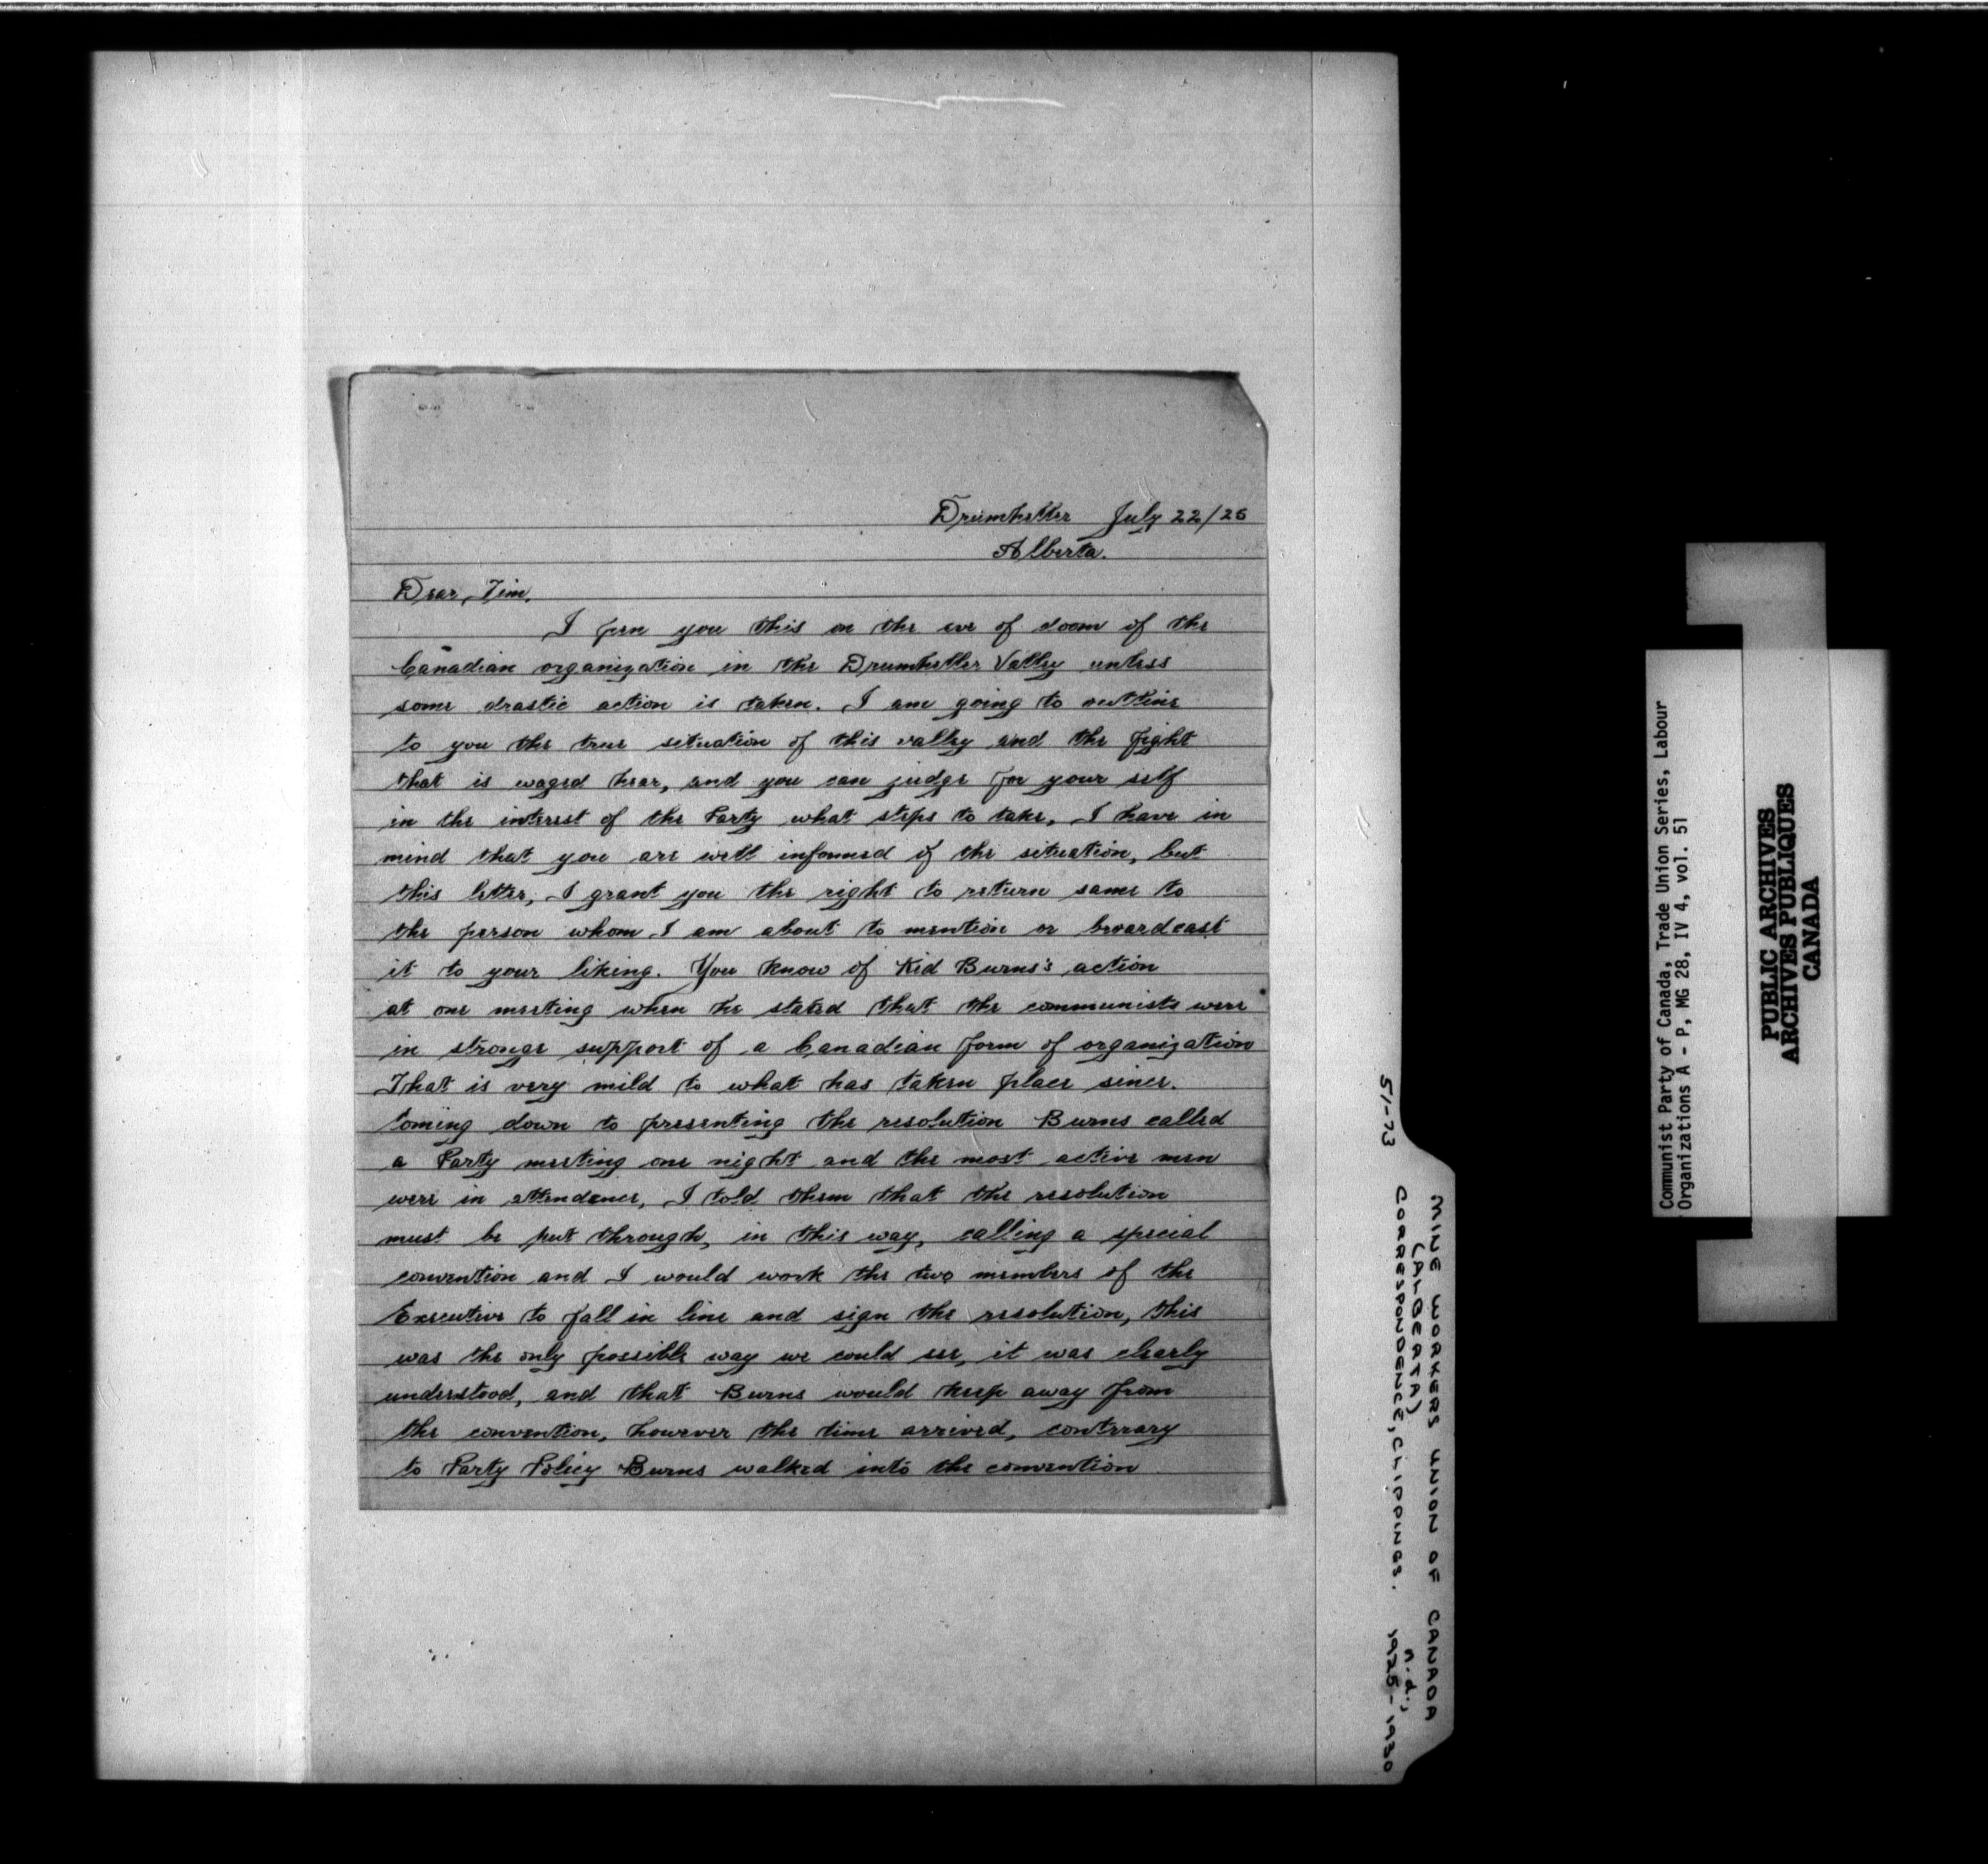 Drumheller July 22/25
Alberta.
Dear, Tim,
I pen you this on the eve of doom of the
Canadian organization in the Drumheller Valley unless
some drastic action is taken. I am going to outline
to you the true situation of this valley and the fight
that is waged hear, and you can judge for your self
in the interest of the Party what steps to take, I have in
mind that you are well informed of the situation, but
this letter, I grant you the right to return same to
the person whom I am about to mention or broardcast
it to your liking. You know of Kid Burns's action
at one meeting when he stated that the communists were
in stronge support of a Canadian form of organization
That is very mild to what has taken place since.
Coming down to presenting the resolution Burns called
a Party meeting one night and the most active men
were in attendance, I told them that the resolution
must be put through, in this way, calling a special
convention and I would work the two members of the
Executive to fall in line and sign the resolution, this
was the only possible way we could see, it was clearly
understood, and that Burns would keep away from
the convention, however the time arrived, contrrary
to Party Policy Burns walked into the convention
51-73
MINE WORKERS UNION OF CANADA
(ALBERTA) n.d.,
CORRESPONDENCE, CLIPPINGS. 1925-1930
Communist Party of Canada, Trade Union Series, Labour
Organizations A - P, MG 28, IV 4, vol. 51
PUBLIC ARCHIVES
ARCHIVES PUBLIQUES
CANADA